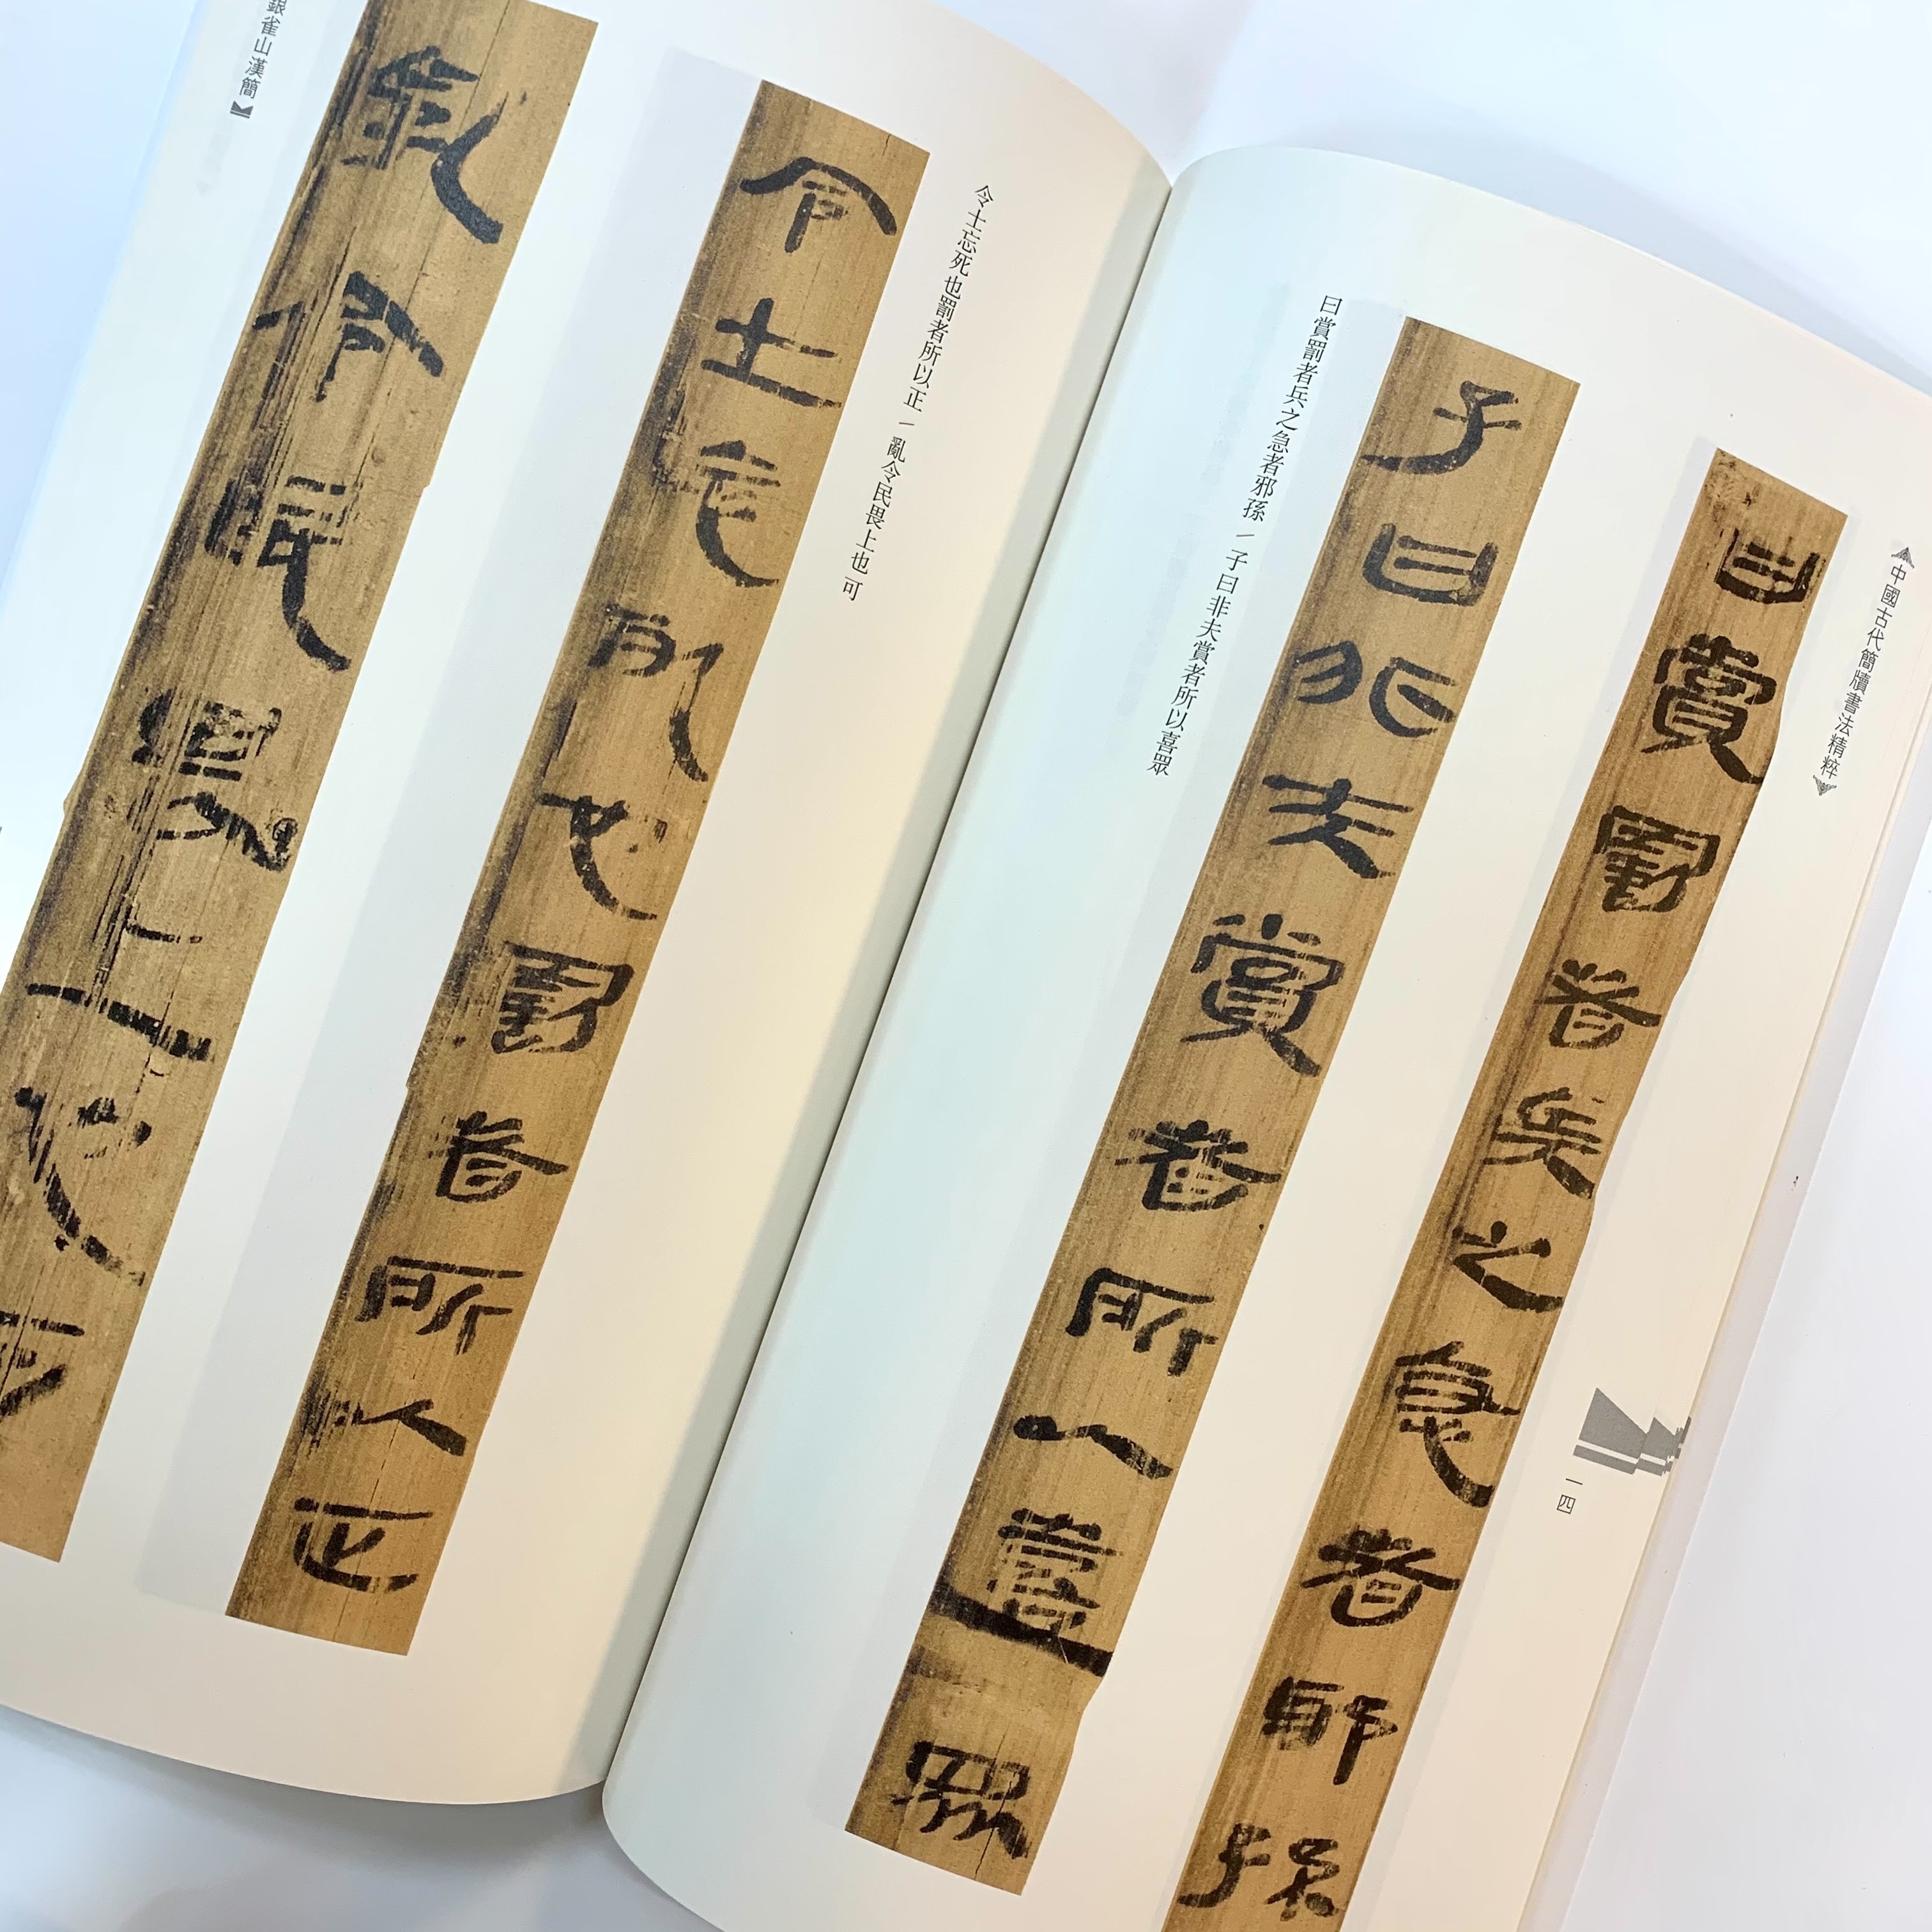 中國古代簡牘書法精粹
一四
曰賞罰者兵之急者邪孫
子曰非夫賞者所以喜眾
曰賞罰者兵之急者邪孫/子曰非夫賞者所以喜眾
令士忘死也罰者所以正/亂令民畏上也可
令士忘死也罰者所以正
亂令民畏上也可
銀雀山漢簡